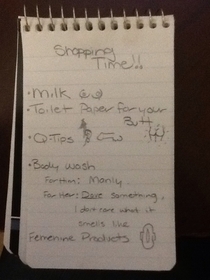 Shopping
Time!!
• Milk
• Toilet Paper for your
Butt
• Q-Tips
• Body wash
For Him: Manly.
For Her: Dove something,
I dont care what it
smells like
Femenine Products